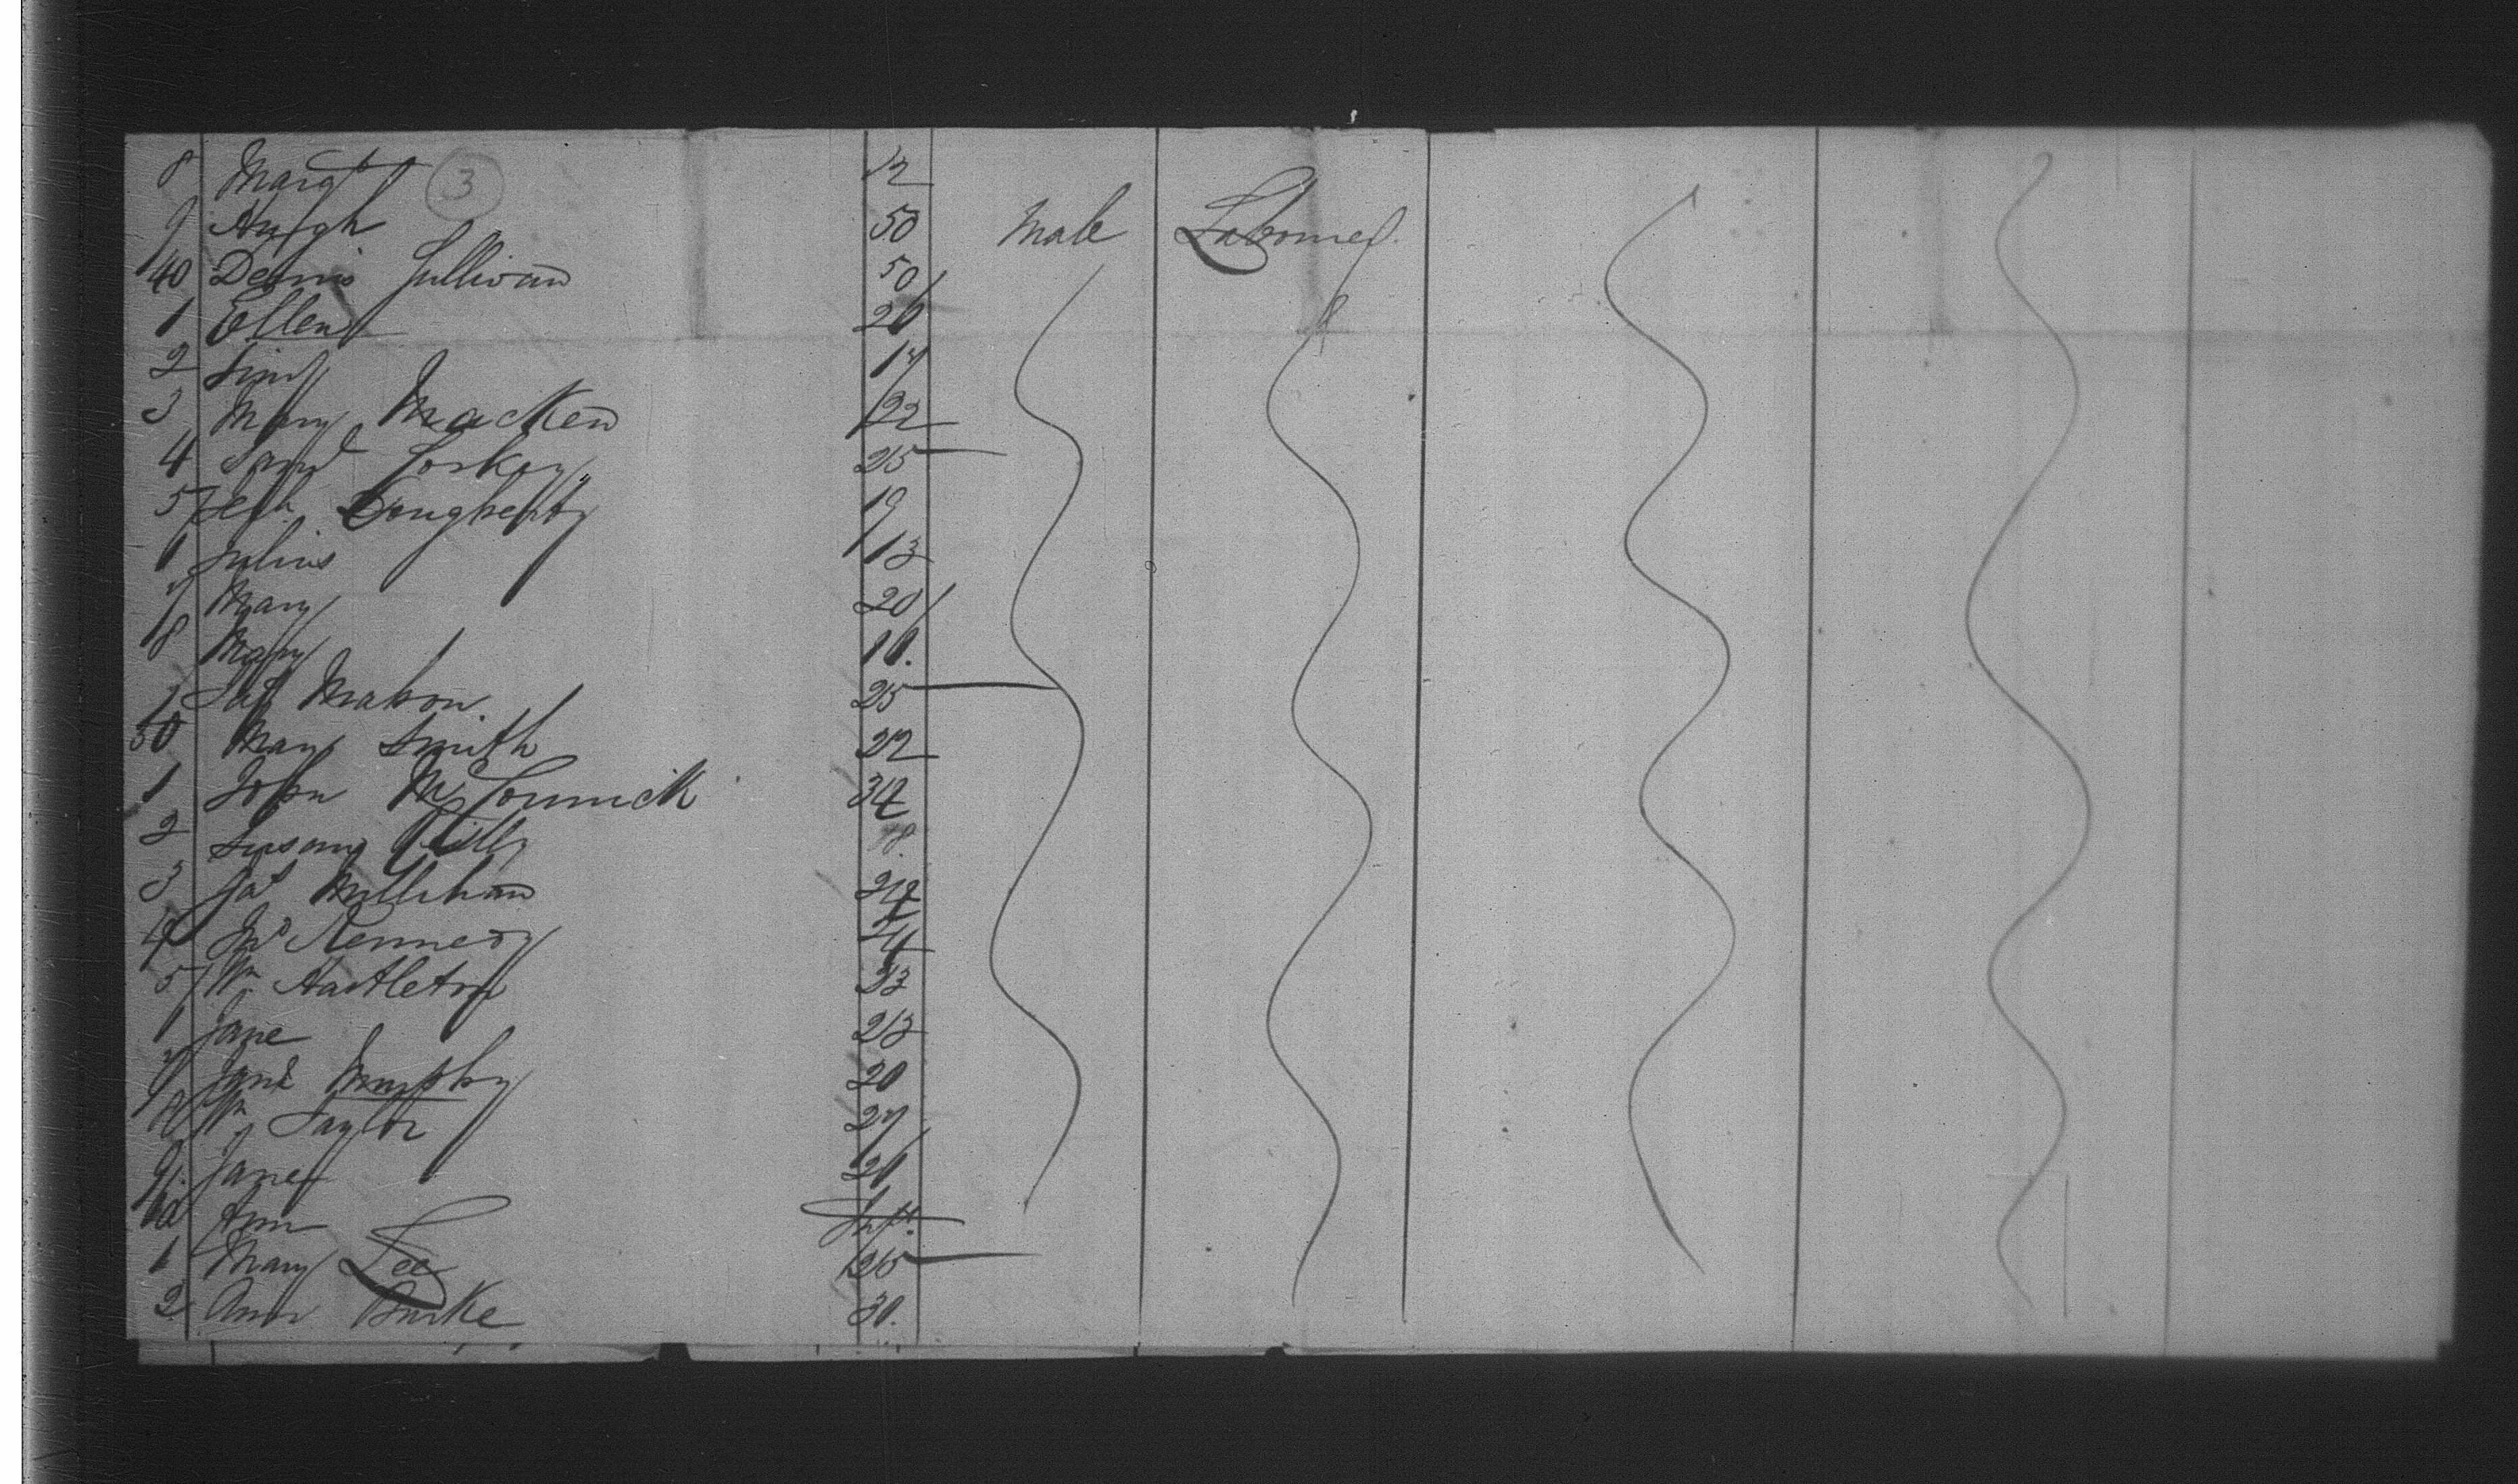 3
8 Margt 12
9 Hugh 50 Male Labourer
40 Dennis Sullivan 50
1 Ellen 26
2 Jim 14
3 Mary Macken 22
4 25
5 Dougherty 19
6 Julius 13
7 Mary 20
8 Mary 16.
Pat Mahon 25
50 Mary Smith 22
1 John McCormick 34
2 Susan Reilly 18.
3 Jas Millihan 24
4 Jno Kennedy 24
5 Wm Hartleton 33
6 Jane 23
7 Jane Murphy 20
8 Wm Taylor 27
9. Jane 26
60 Ann Inft.
1 Mary Lee 25
2 Ann Burke 30.